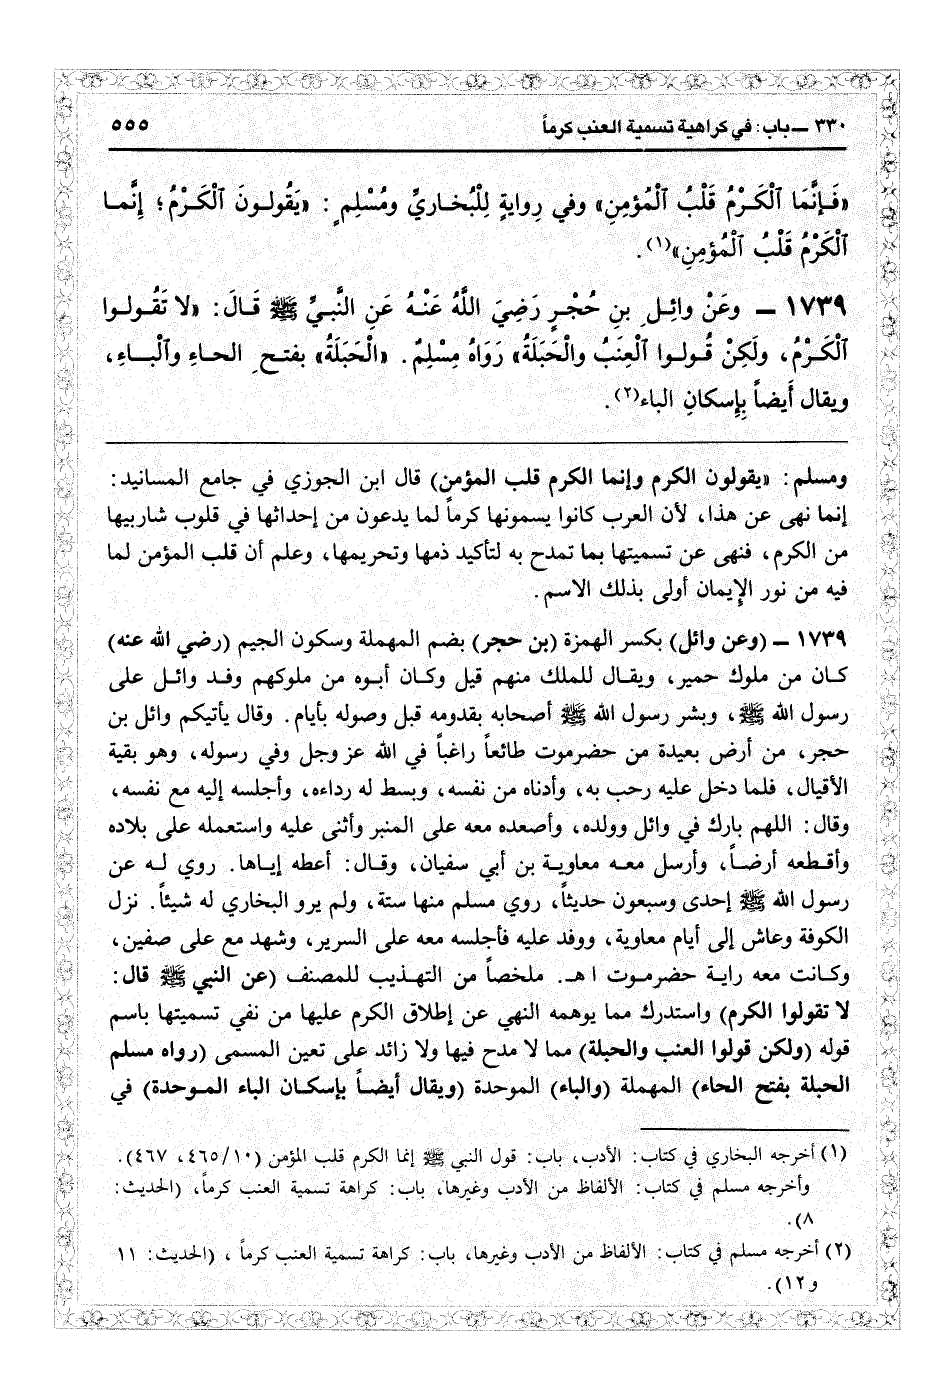 ٣٣٠ ــ باب: في كراهية تسمية العنب كرماً ٥٥٥
«فَإِنَّمَا ٱلْكَرْمُ قَلْبُ ٱلْمُؤمِنِ» وفي رِوايةٍ لِلْبُخاريِّ ومُسْلِمٍ: «يَقُولونَ ٱلْكَرْمُ؛ إنَّما
ٱلْكَرْمُ قَلْبُ ٱلْمُؤمِنِ»(١).
١٧٣٩ ــ وعَنْ وائِلِ بنِ حُجْرٍ رَضِيَ اللَّهُ عَنْهُ عَنِ النَّبيِّ ﷺ قَالَ: «لا تَقُولوا
ٱلْكَرْمُ، ولَكِنْ قُولوا ٱلْعِنَبُ والْحَبَلَةُ» رَوَاهُ مِسْلِمٌ. «الْحَبَلَةُ» بفتحِ الحاءِ وٱلْباءِ،
ويقال أَيضاً بِإِسكانِ الباء(٢).
ومسلم: «يقولون الكرم وإنما الكرم قلب المؤمن) قال ابن الجوزي في جامع المسانيد:
إنما نهى عن هذا، لأن العرب كانوا يسمونها كرماً لما يدعون من إحداثها في قلوب شاربيها
من الكرم، فنهى عن تسميتها بما تمدح به لتأكيد ذمها وتحريمها، وعلم أن قلب المؤمن لما
فيه من نور الإِيمان أولى بذلك الاسم.
١٧٣٩ ــ (وعن وائل) بكسر الهمزة (بن حجر) بضم المهملة وسكون الجيم (رضي الله عنه)
كان من ملوك حمير، ويقال للملك منهم قيل وكان أبوه من ملوكهم وفد وائل على
رسول الله ﷺ، وبشر رسول الله ﷺ أصحابه بقدومه قبل وصوله بأيام. وقال يأتيكم وائل بن
حجر، من أرض بعيدة من حضرموت طائعاً راغباً في الله عز وجل وفي رسوله، وهو بقية
الأقيال، فلما دخل عليه رحب به، وأدناه من نفسه، وبسط له رداءه، وأجلسه إليه مع نفسه،
وقال: اللهم بارك في وائل وولده، وأصعده معه على المنبر وأثنى عليه واستعمله على بلاده
وأقطعه أرضاً، وأرسل معه معاوية بن أبي سفيان، وقال: أعطه إياها. روي له عن
رسول الله ﷺ إحدى وسبعون حديثاً، روي مسلم منها ستة، ولم يرو البخاري له شيئاً. نزل
الكوفة وعاش إلى أيام معاوية، ووفد عليه فأجلسه معه على السرير، وشهد مع على صفين،
وكانت معه راية حضرموت اهـ. ملخصاً من التهذيب للمصنف (عن النبي ﷺ قال:
لا تقولوا الكرم) واستدرك مما يوهمه النهي عن إطلاق الكرم عليها من نفي تسميتها باسم
قوله (ولكن قولوا العنب والحبلة) مما لا مدح فيها ولا زائد على تعين المسمى (رواه مسلم
الحبلة بفتح الحاء) المهملة (والباء) الموحدة (ويقال أيضاً بإسكان الباء الموحدة) في
(١) أخرجه البخاري في كتاب: الأدب، باب: قول النبي ﷺ إنما الكرم قلب المؤمن (٤٦٥/١٠، ٤٦٧).
وأخرجه مسلم في كتاب: الألفاظ من الأدب وغيرها، باب: كراهة تسمية العنب كرماً، (الحديث:
٨).
(٢) أخرجه مسلم في كتاب: الألفاظ من الأدب وغيرها، باب: كراهة تسمية العنب كرماً ، (الحديث: ١١
و١٢).